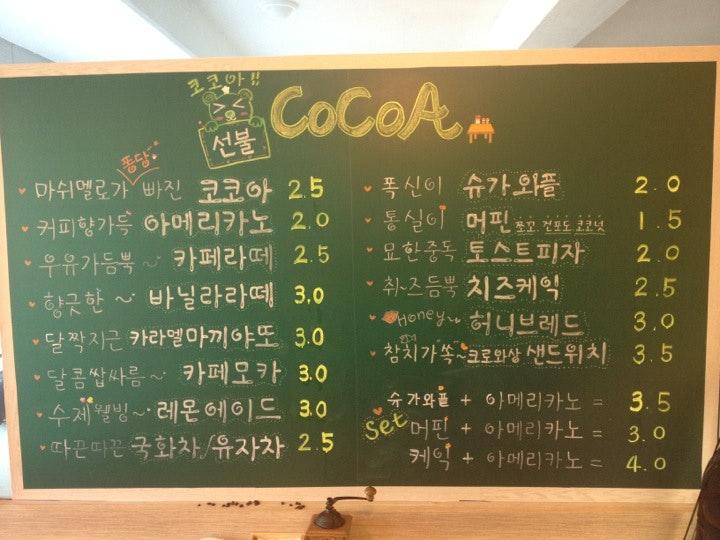 코코아!!
CoCoA
선불
퐁당
마쉬멜로가 빠진 코코아 2.5
커피향가득 아메리카노 2.0
우유가듬뿍~ 카페라떼 2.5
향긋한~ 바닐라라떼 3.0
달짝지근 카라멜마끼야또 3.0
달콤쌉싸름~ 카페모카 3.0
수제웰빙~ 레몬에이드 3.0
따끈따끈 국화차/유자차 2.5
폭신이 슈가와플 2.0
통실이 머핀 쪼꼬 건포도 코코넛 1.5
묘한중독 토스트피자 2.0
취~즈듬뿍 치즈케익 2.5
Honey~ 허니브레드 3.0
참치가쏙~크로와상 샌드위치 3.5
Set
슈가와플 + 아메리카노 = 3.5
머핀 + 아메리카노 = 3.0
케익 + 아메리카노 = 4.0